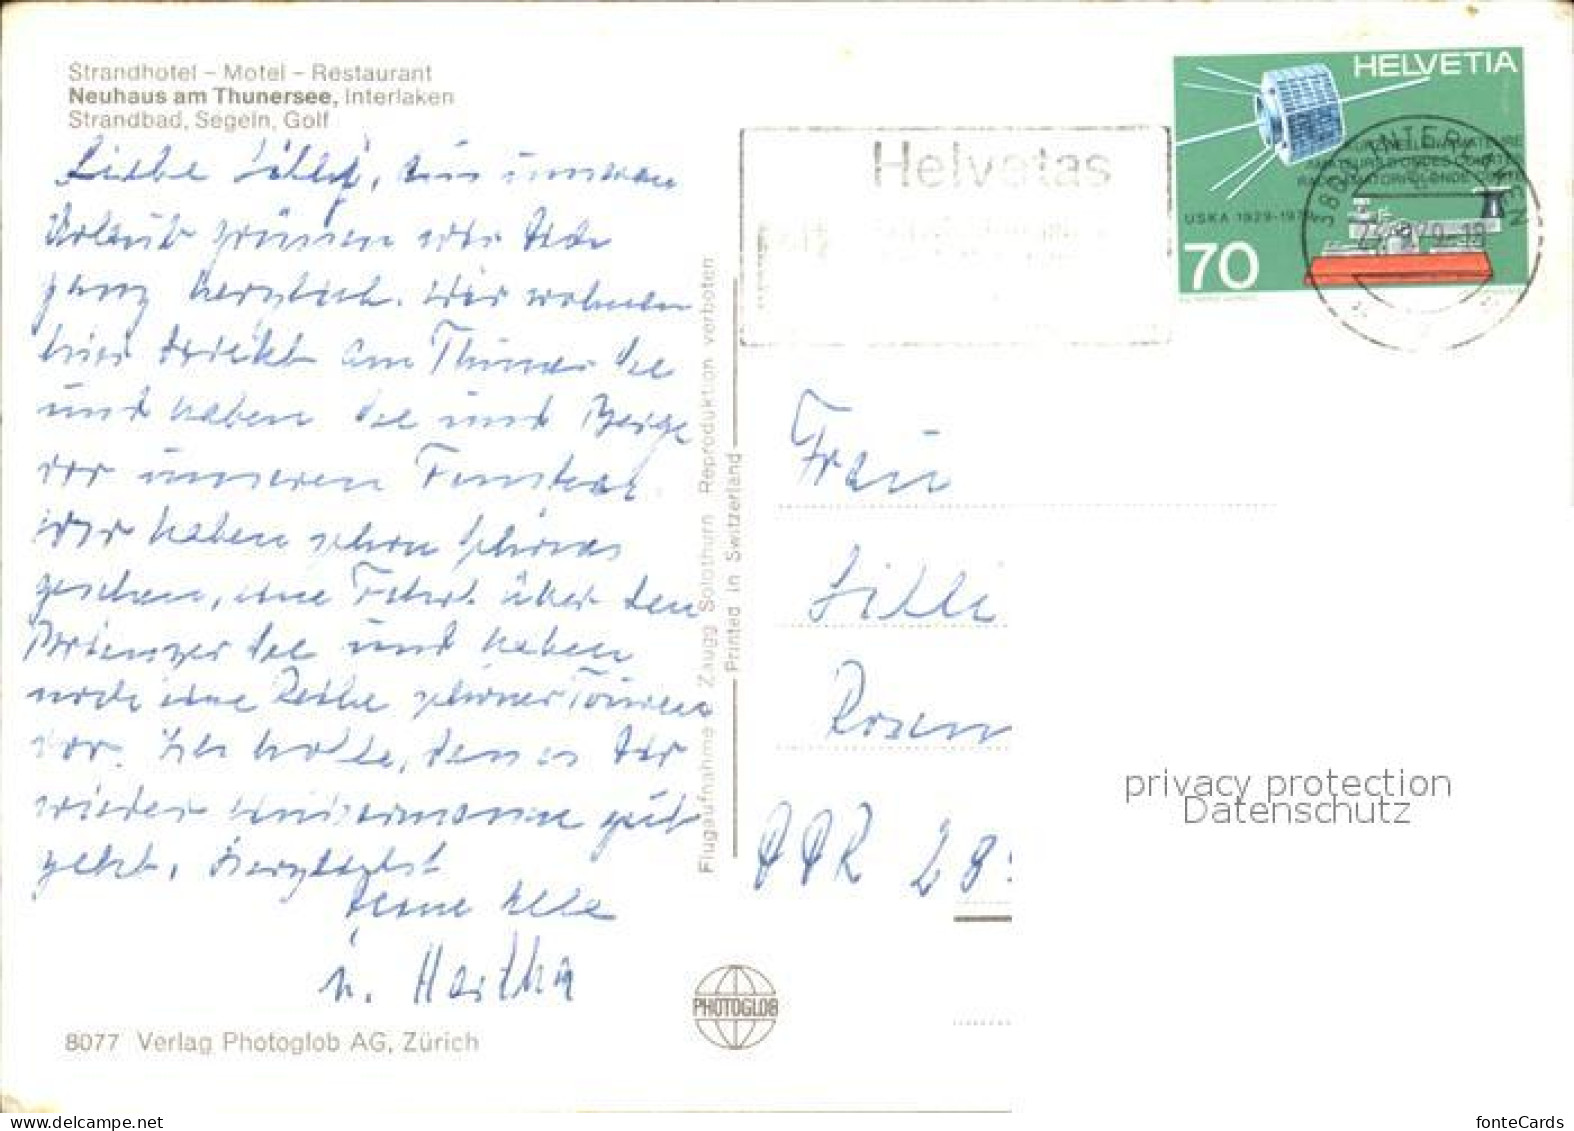 Strandhotel – Motel – Restaurant
Neuhaus am Thunersee, Interlaken
Strandbad, Segeln, Golf
Liebe Lilli, aus unseren
Urlaub grüssen wir Dich
ganz herzlich. Wir wohnen
hier direkt am Thuner See
und haben See und Berge
vor unseren Fenstern.
Wir haben schon schönes
gesehen, eine Fahrt über den
Brienzer See und haben
noch eine Reihe schöner Touren
vor. Ich hoffe, dass es Dir
wieder einigermassen gut
geht. Herzlichst
Deine
u. Hertha
8077 Verlag Photoglob AG, Zürich
Flugaufnahme Zaugg Solothurn Reproduktion verboten
Printed in Switzerland
PHOTOGLOB
Helvetas
HELVETIA
USKA 1929-1979
70
3800 INTERLAKEN
Frau
Lilli
Rosen
DDR 28
privacy protection
Datenschutz
fonteCards